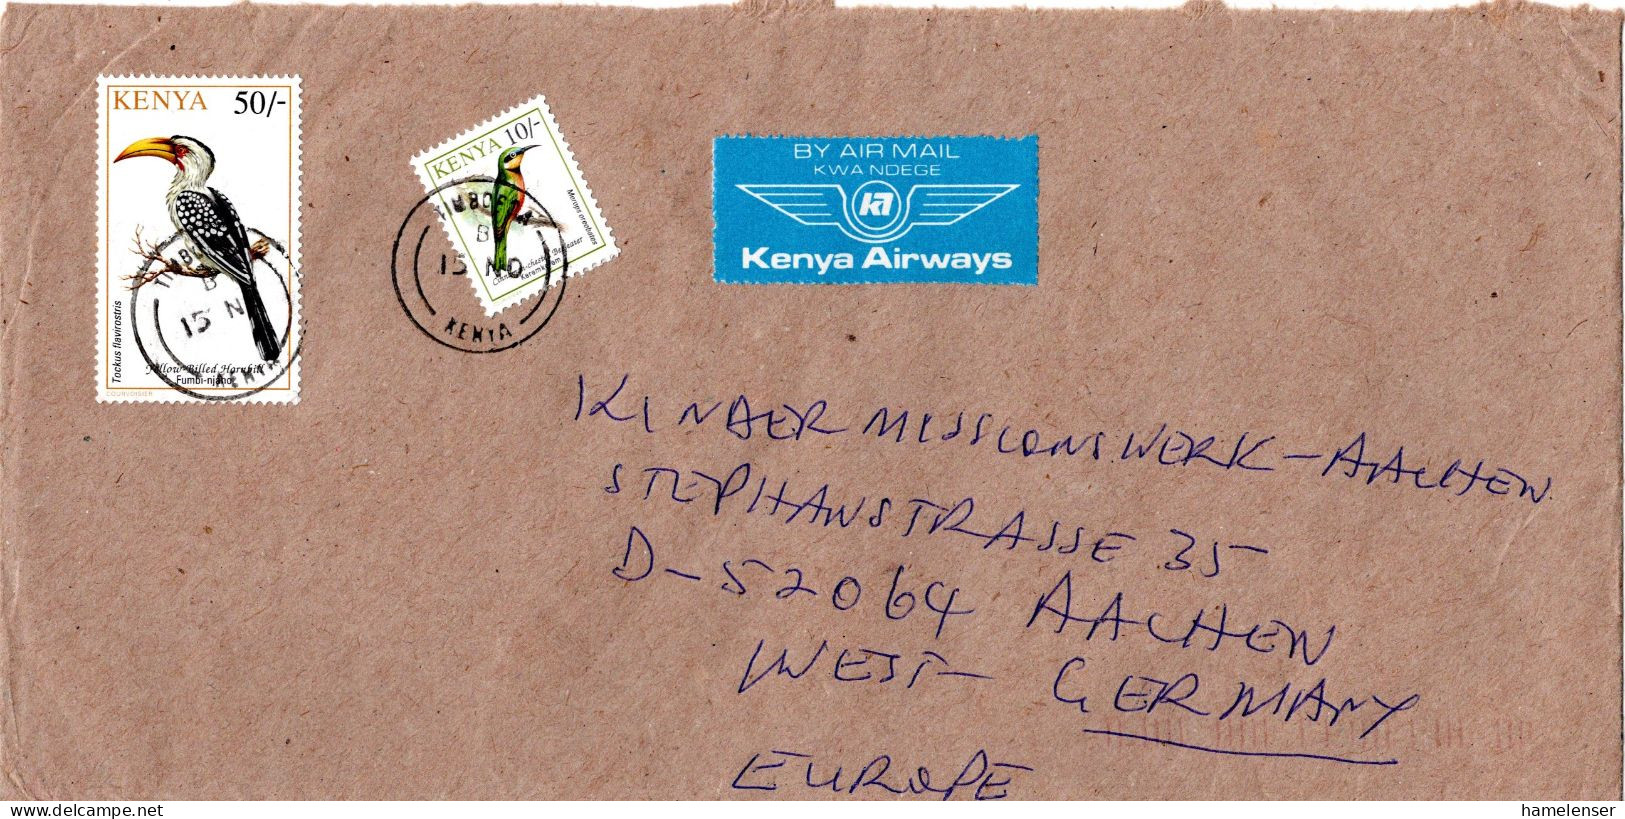 KENYA 50/-
Tockus flavirostris
Yellow-Billed Hornbill
Fumbi-njano
COURVOISIER
15 N
KENYA
KENYA 10/-
Merops oreobates
Cinnamon-chested Bee-eater
Keremkerem
B
15 NO
KENYA
BY AIR MAIL
KWA NDEGE
Kenya Airways
KINDERMISSIONSWERK - AACHEN
STEPHANSTRASSE 35
D-52064 AACHEN
WEST- GERMANY
EUROPE
www.delcampe.net
hamelenser